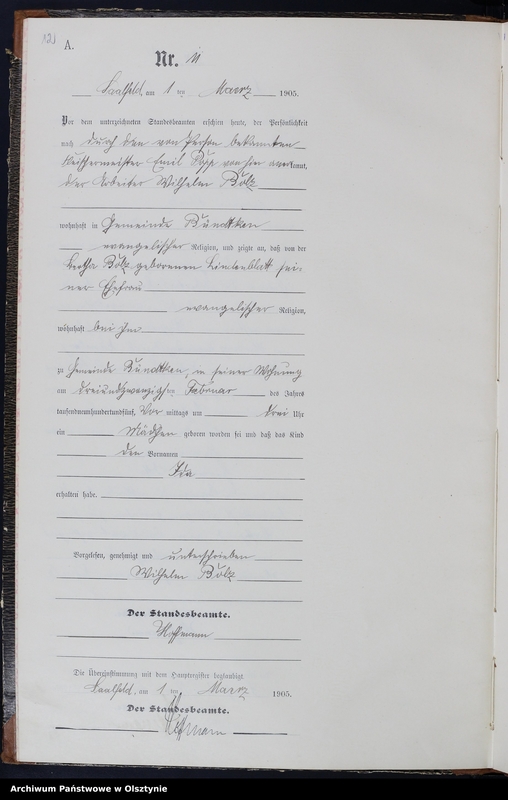 A.
Nr. 11
Saalfeld, am 1 ten Maerz 1905.
Vor dem unterzeichneten Standesbeamten erschien heute, der Persönlichkeit
nach durch den von Person bekannten
Emil von hier anerkannt,
der Arbeiter Wilhelm Bolz
wohnhaft in Gemeinde Kunzendorf
evangelischer Religion, und zeigte an, daß von der
Bertha Bolz geborenen Lindenblatt sei-
ner Ehefrau
evangelischer Religion,
wohnhaft bei ihm
zu Gemeinde in seiner Wohnung
am dreiundzwanzigsten Februar des Jahres
tausendneunhundertundfünf, Vor mittags um drei Uhr
ein Mädchen geboren worden sei und daß das Kind
den Vornamen
Ida
erhalten habe.
Vorgelesen, genehmigt und unterschrieben
Wilhelm Bolz
Der Standesbeamte.
Hoffmann
Die Übereinstimmung mit dem Hauptregister beglaubigt
Saalfeld, am 1 ten Maerz 1905.
Der Standesbeamte.
Hoffmann
Archiwum Państwowe w Olsztynie